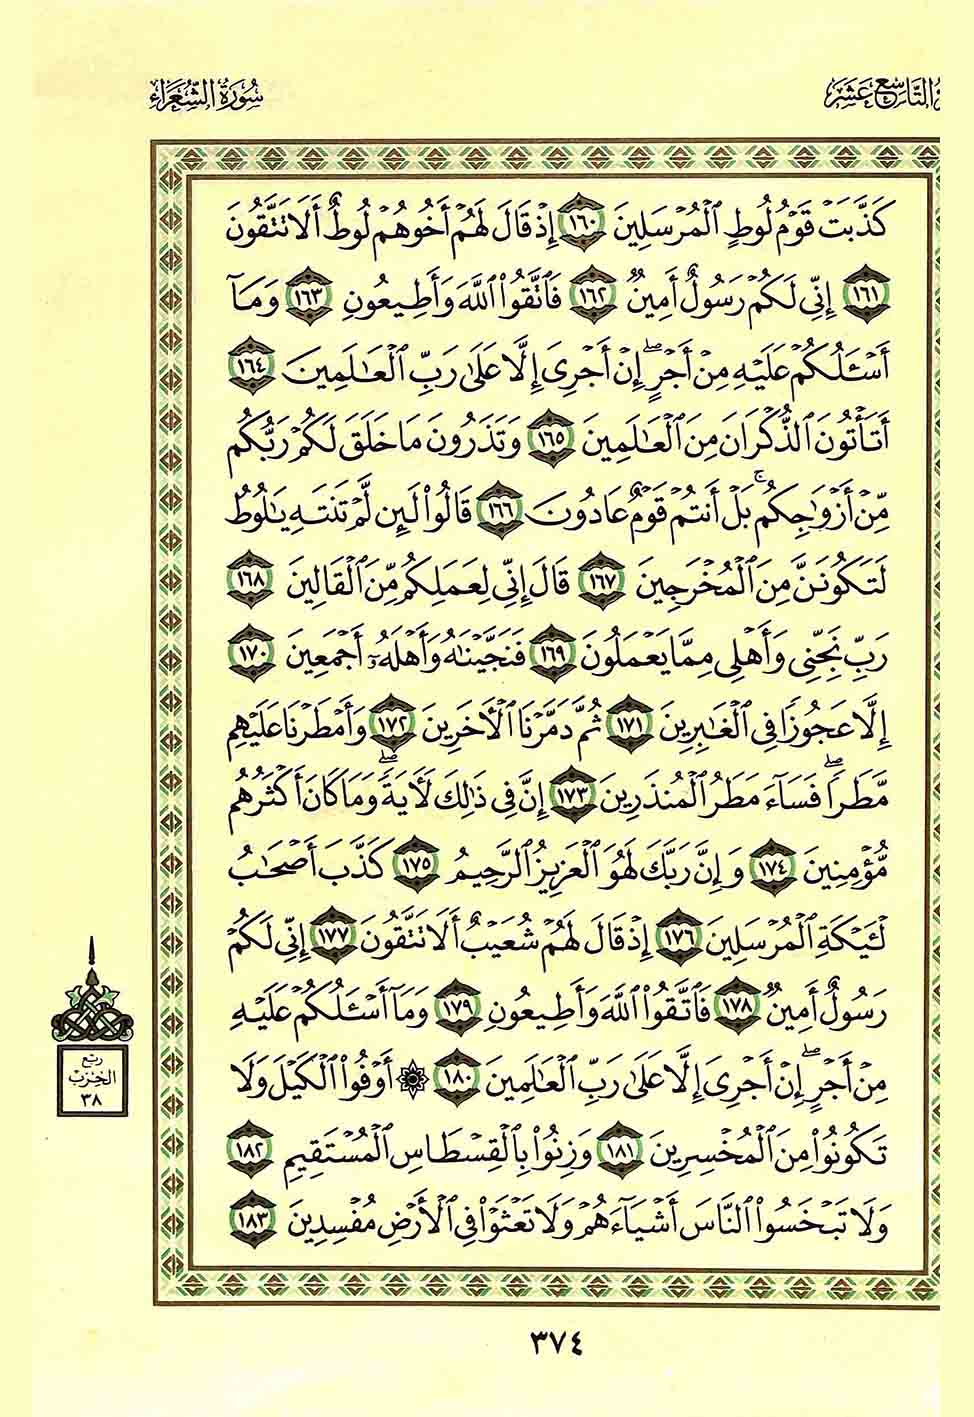 التَّاسِعَ عَشَرَ
سُورَةُ الشُّعَرَاءِ
كَذَّبَتْ قَوْمُ لُوطٍ ٱلْمُرْسَلِينَ ١٦٠ إِذْ قَالَ لَهُمْ أَخُوهُمْ لُوطٌ أَلَا تَتَّقُونَ
١٦١ إِنِّى لَكُمْ رَسُولٌ أَمِينٌ ١٦٢ فَٱتَّقُوا۟ ٱللَّهَ وَأَطِيعُونِ ١٦٣ وَمَآ
أَسْـَٔلُكُمْ عَلَيْهِ مِنْ أَجْرٍ ۖ إِنْ أَجْرِىَ إِلَّا عَلَىٰ رَبِّ ٱلْعَـٰلَمِينَ ١٦٤
أَتَأْتُونَ ٱلذُّكْرَانَ مِنَ ٱلْعَـٰلَمِينَ ١٦٥ وَتَذَرُونَ مَا خَلَقَ لَكُمْ رَبُّكُم
مِّنْ أَزْوَٰجِكُم ۚ بَلْ أَنتُمْ قَوْمٌ عَادُونَ ١٦٦ قَالُوا۟ لَئِن لَّمْ تَنتَهِ يَـٰلُوطُ
لَتَكُونَنَّ مِنَ ٱلْمُخْرَجِينَ ١٦٧ قَالَ إِنِّى لِعَمَلِكُم مِّنَ ٱلْقَالِينَ ١٦٨
رَبِّ نَجِّنِى وَأَهْلِى مِمَّا يَعْمَلُونَ ١٦٩ فَنَجَّيْنَـٰهُ وَأَهْلَهُۥٓ أَجْمَعِينَ ١٧٠
إِلَّا عَجُوزًا فِى ٱلْغَـٰبِرِينَ ١٧١ ثُمَّ دَمَّرْنَا ٱلْـَٔاخَرِينَ ١٧٢ وَأَمْطَرْنَا عَلَيْهِم
مَّطَرًا ۖ فَسَآءَ مَطَرُ ٱلْمُنذَرِينَ ١٧٣ إِنَّ فِى ذَٰلِكَ لَـَٔايَةً ۖ وَمَا كَانَ أَكْثَرُهُم
مُّؤْمِنِينَ ١٧٤ وَإِنَّ رَبَّكَ لَهُوَ ٱلْعَزِيزُ ٱلرَّحِيمُ ١٧٥ كَذَّبَ أَصْحَـٰبُ
لْـَٔيْكَةِ ٱلْمُرْسَلِينَ ١٧٦ إِذْ قَالَ لَهُمْ شُعَيْبٌ أَلَا تَتَّقُونَ ١٧٧ إِنِّى لَكُمْ
رَسُولٌ أَمِينٌ ١٧٨ فَٱتَّقُوا۟ ٱللَّهَ وَأَطِيعُونِ ١٧٩ وَمَآ أَسْـَٔلُكُمْ عَلَيْهِ
مِنْ أَجْرٍ ۖ إِنْ أَجْرِىَ إِلَّا عَلَىٰ رَبِّ ٱلْعَـٰلَمِينَ ١٨٠ ۞ أَوْفُوا۟ ٱلْكَيْلَ وَلَا
تَكُونُوا۟ مِنَ ٱلْمُخْسِرِينَ ١٨١ وَزِنُوا۟ بِٱلْقِسْطَاسِ ٱلْمُسْتَقِيمِ ١٨٢
وَلَا تَبْخَسُوا۟ ٱلنَّاسَ أَشْيَآءَهُمْ وَلَا تَعْثَوْا۟ فِى ٱلْأَرْضِ مُفْسِدِينَ ١٨٣
ربع
الحزب
٣٨
٣٧٤